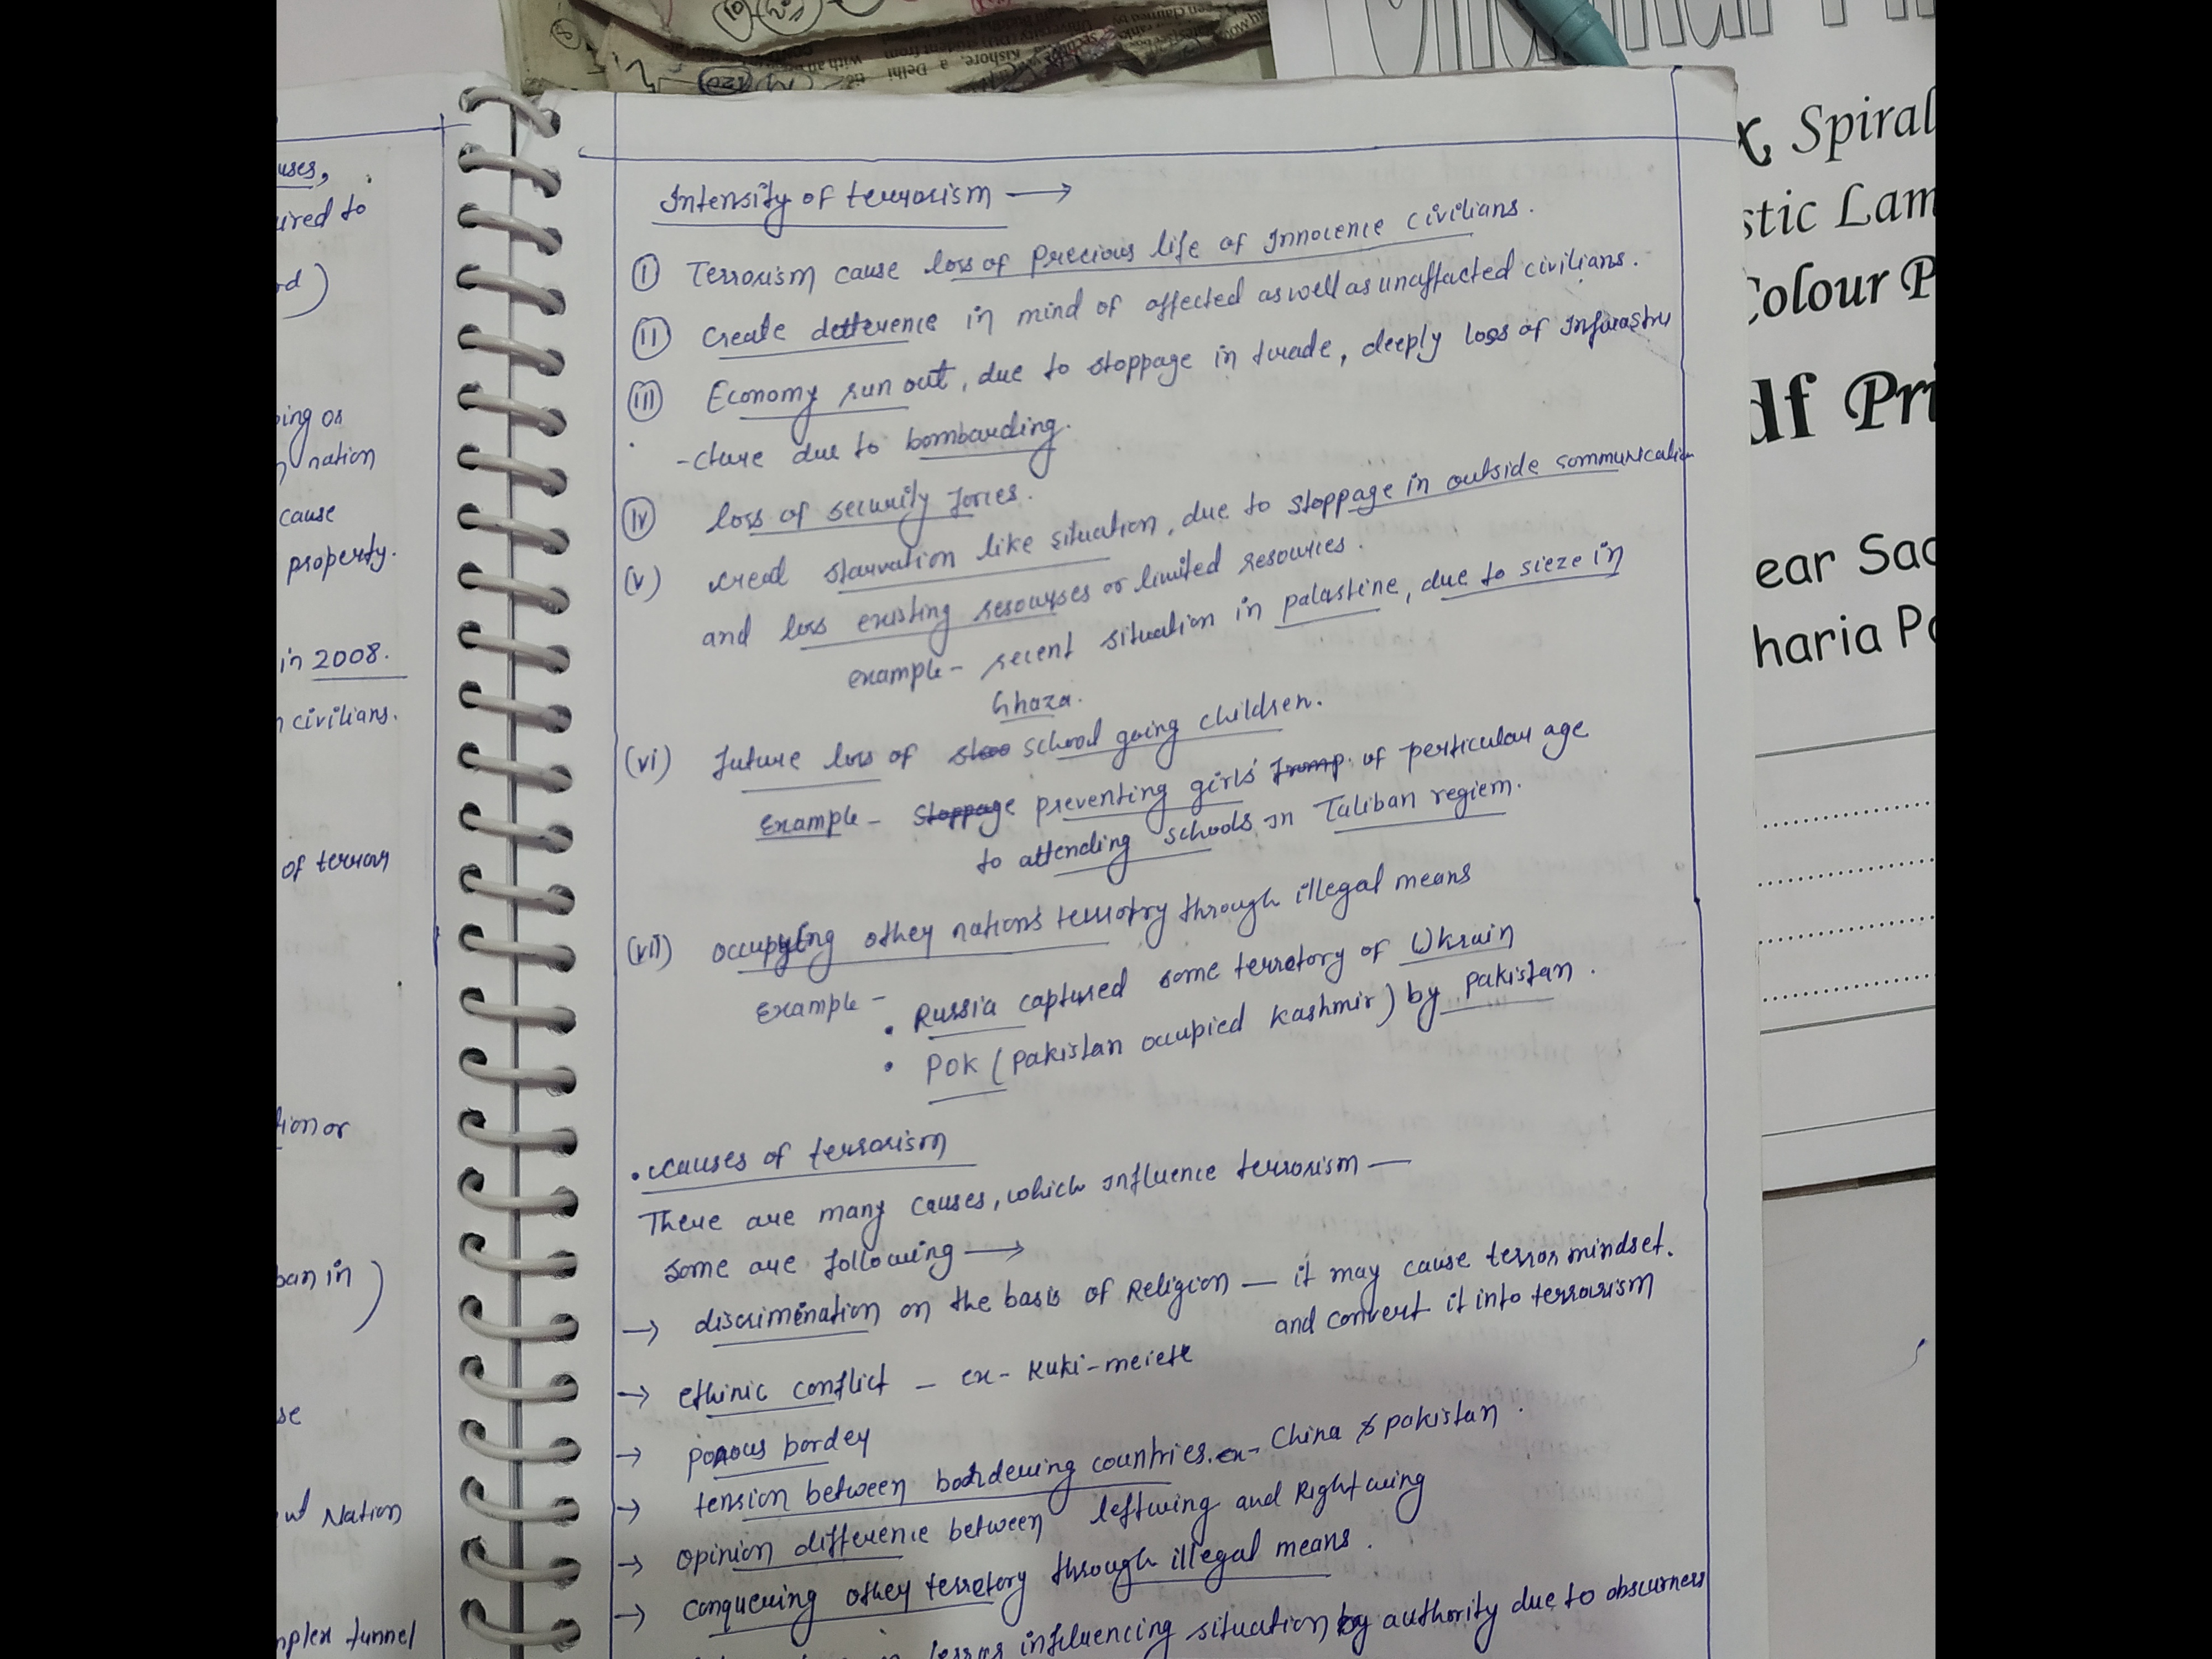 Kishore, a Delhi
University
student from
with an
uses,
ired to
od)
ing or
nation
cause
property.
in 2008.
civilians.
of terrory
tion or
ban in)
se
Nation
mplex tunnel
Intensity of terrorism →
(i) Terrorism cause loss of Precious life of Innocence civilians.
(ii) Create detterence in mind of affected as well as unaffacted civilians.
(iii) Economy run out, due to stoppage in trade, deeply loss of Infrastru
-cture due to bombarding.
(iv) loss of security forces.
(v) creat starvation like situation, due to stoppage in outside sommunication
and loss existing resourses or limited resources.
example - recent situation in palastine, due to sieze in
Ghaza.
(vi) future loss of school going children.
Example - Stoppage preventing girls of perticular age
to attending schools in Taliban regiem.
(vii) occupying othey nation's terrotry through illegal means
Example -
• Russia captured some terretory of Ukrain
• POK (Pakistan occupied Kashmir) by pakistan.
• Causes of terrorism
There are many causes, which influence terrorism —
some are following →
→ discrimination on the basis of Religion — it may cause terror mindset.
and convert it into terrorism
→ ethinic conflict - ex - Kuki-meiete
→ porous bordey
→ tension between bordering countries. ex- China & pakistan.
→ opinion difference between leftwing and Rightwing
→ conquering othey terretory through illegal means.
influencing situation by authority due to obscurness
Spiral
stic Lam
Colour P
df Pri
ear Sac
haria Po